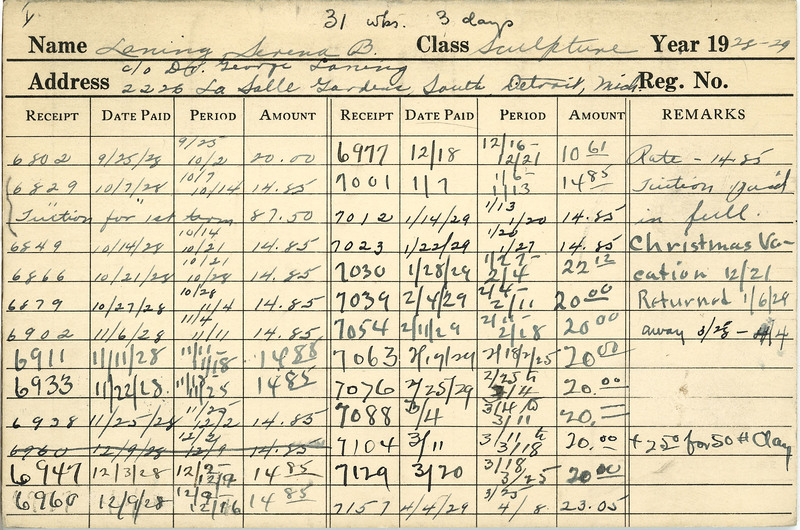 31 wks. 3 days
Name Laning, Serena B. Class Sculpture Year 1928-29
Address c/o Dr. George Laning
2226 La Salle Gardens, South Detroit, Mich. Reg. No.
RECEIPT DATE PAID PERIOD AMOUNT RECEIPT DATE PAID PERIOD AMOUNT REMARKS
6802 9/25/28 9/25 10/2 20.00 6977 12/18 12/16- 12/21 10 61 Rate - 14.85
6829 10/7/28 10/7 10/14 14.85 7001 1/7 1/6- 1/13 14 85 Tuition paid
Tuition for "1st term 87.50 7012 1/14/29 1/13 1/20 14.85 in full.
6849 10/14/28 10/14 10/21 14.85 7023 1/22/29 1/20 1/27 14.85 Christmas Va-
6866 10/21/28 10/21 10/28 14.85 7030 1/28/29 1/27- 2/4 22 12 cation 12/21
6879 10/27/28 10/28 11/4 14.85 7039 2/4/29 2/4- 2/11 20 00 Returned 1/6/29
6902 11/6/28 11/4 11/11 14.85 7054 2/11/29 2/11- 2/18 20 00 away 3/28 - 4/4
6911 11/11/28 11/11- 11/18 14 85 7063 2/17/29 2/18 2/25 20 00
6933 11/22/28 11/18 11/25 14 85 7076 2/25/29 2/25 to 3/4 20.00
6938 11/25/28 11/25 12/2 14.85 7088 3/4 3/4 to 3/11 20.=
6960 12/9/28 12/2 12/9 14.85 7104 3/11 3/11 to 3/18 20.00 + 2 50 for 50 # Clay
6947 12/3/28 12/2- 12/9 14 85 7129 3/20 3/18, 3/25 20 00
6960 12/9/28 12/9- 12/16 14 85 7157 4/4/29 3/25 4/8 23.05